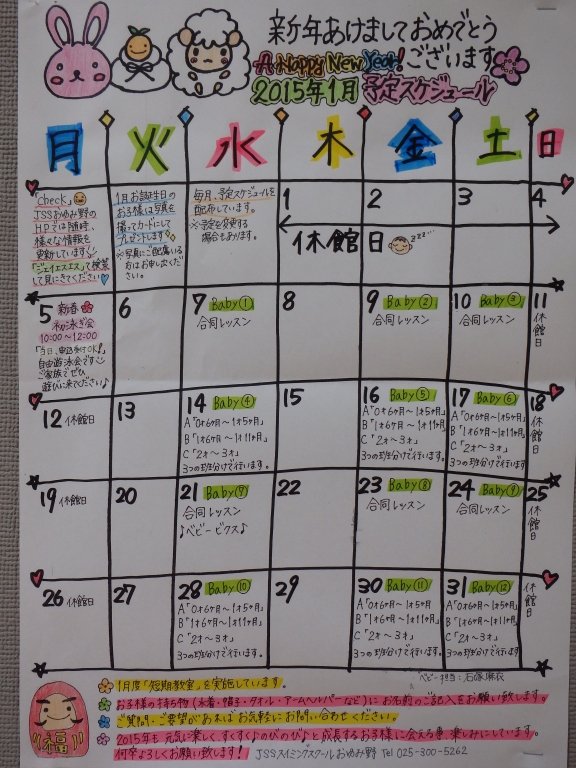 新年あけましておめでとう
ございます
A Happy New Year!
2015年1月 予定スケジュール
月 火 水 木 金 土 日
「check」
JSSおゆみ野の
HPでは随時、
様々な情報を
更新しています
「ジェイエスエス」で検索
して見にきてください
1月お誕生日の
お子様は写真を
撮ってカードにして
プレゼントします
※写真にご配慮いる
方はお申し出くだ
さい。
毎月、予定スケジュールを
配布しています。
※予定を変更する
場合もあります。
1 2 3 4
休館日 zzz...
5 新春
初泳ぎ会
10:00~12:00
「当日、申込受付OK!」
自由遊泳会です
ご家族でぜひ
遊びに来てください♪
6
7 Baby①
合同レッスン
8
9 Baby②
合同レッスン
10 Baby③
合同レッスン
11
休館日
12 休館日
13
14 Baby④
A「0才6ヶ月~1才5ヶ月」
B「1才6ヶ月~1才11ヶ月」
C「2才~3才」
3つの班分けで行います。
15
16 Baby⑤
A「0才6ヶ月~1才5ヶ月」
B「1才6ヶ月~1才11ヶ月」
C「2才~3才」
3つの班分けで行います。
17 Baby⑥
A「0才6ヶ月~1才5ヶ月」
B「1才6ヶ月~1才11ヶ月」
C「2才~3才」
3つの班分けで行います
18
休館日
19 休館日
20
21 Baby⑦
合同レッスン
♪ベビービクス♪
22
23 Baby⑧
合同レッスン
24 Baby⑨
合同レッスン
25
休館日
26 休館日
27
28 Baby⑩
A「0才6ヶ月~1才5ヶ月」
B「1才6ヶ月~1才11ヶ月」
C「2才~3才」
3つの班分けで行います。
29
30 Baby⑪
A「0才6ヶ月~1才5ヶ月」
B「1才6ヶ月~1才11ヶ月」
C「2才~3才」
3つの班分けで行います。
31 Baby⑫
A「0才6ヶ月~1才5ヶ月」
B「1才6ヶ月~1才11ヶ月」
C「2才~3才」
3つの班分けで行います。
休館日
ベビー担当:石塚麻衣
1月度「短期教室」を実施しています。
お子様の持ち物(水着・帽子・タオル・アームヘルパーなど)にお名前のご記入をお願い致します。
ご質問・ご要望があればお気軽にお問い合わせください。
2015年も元気に楽しく、すくすく♪のびのび♪と成長するお子様に会える事、楽しみにしています。
何卒よろしくお願い致します! JSSスイミングスクールおゆみ野 Tel 025-300-5262
福